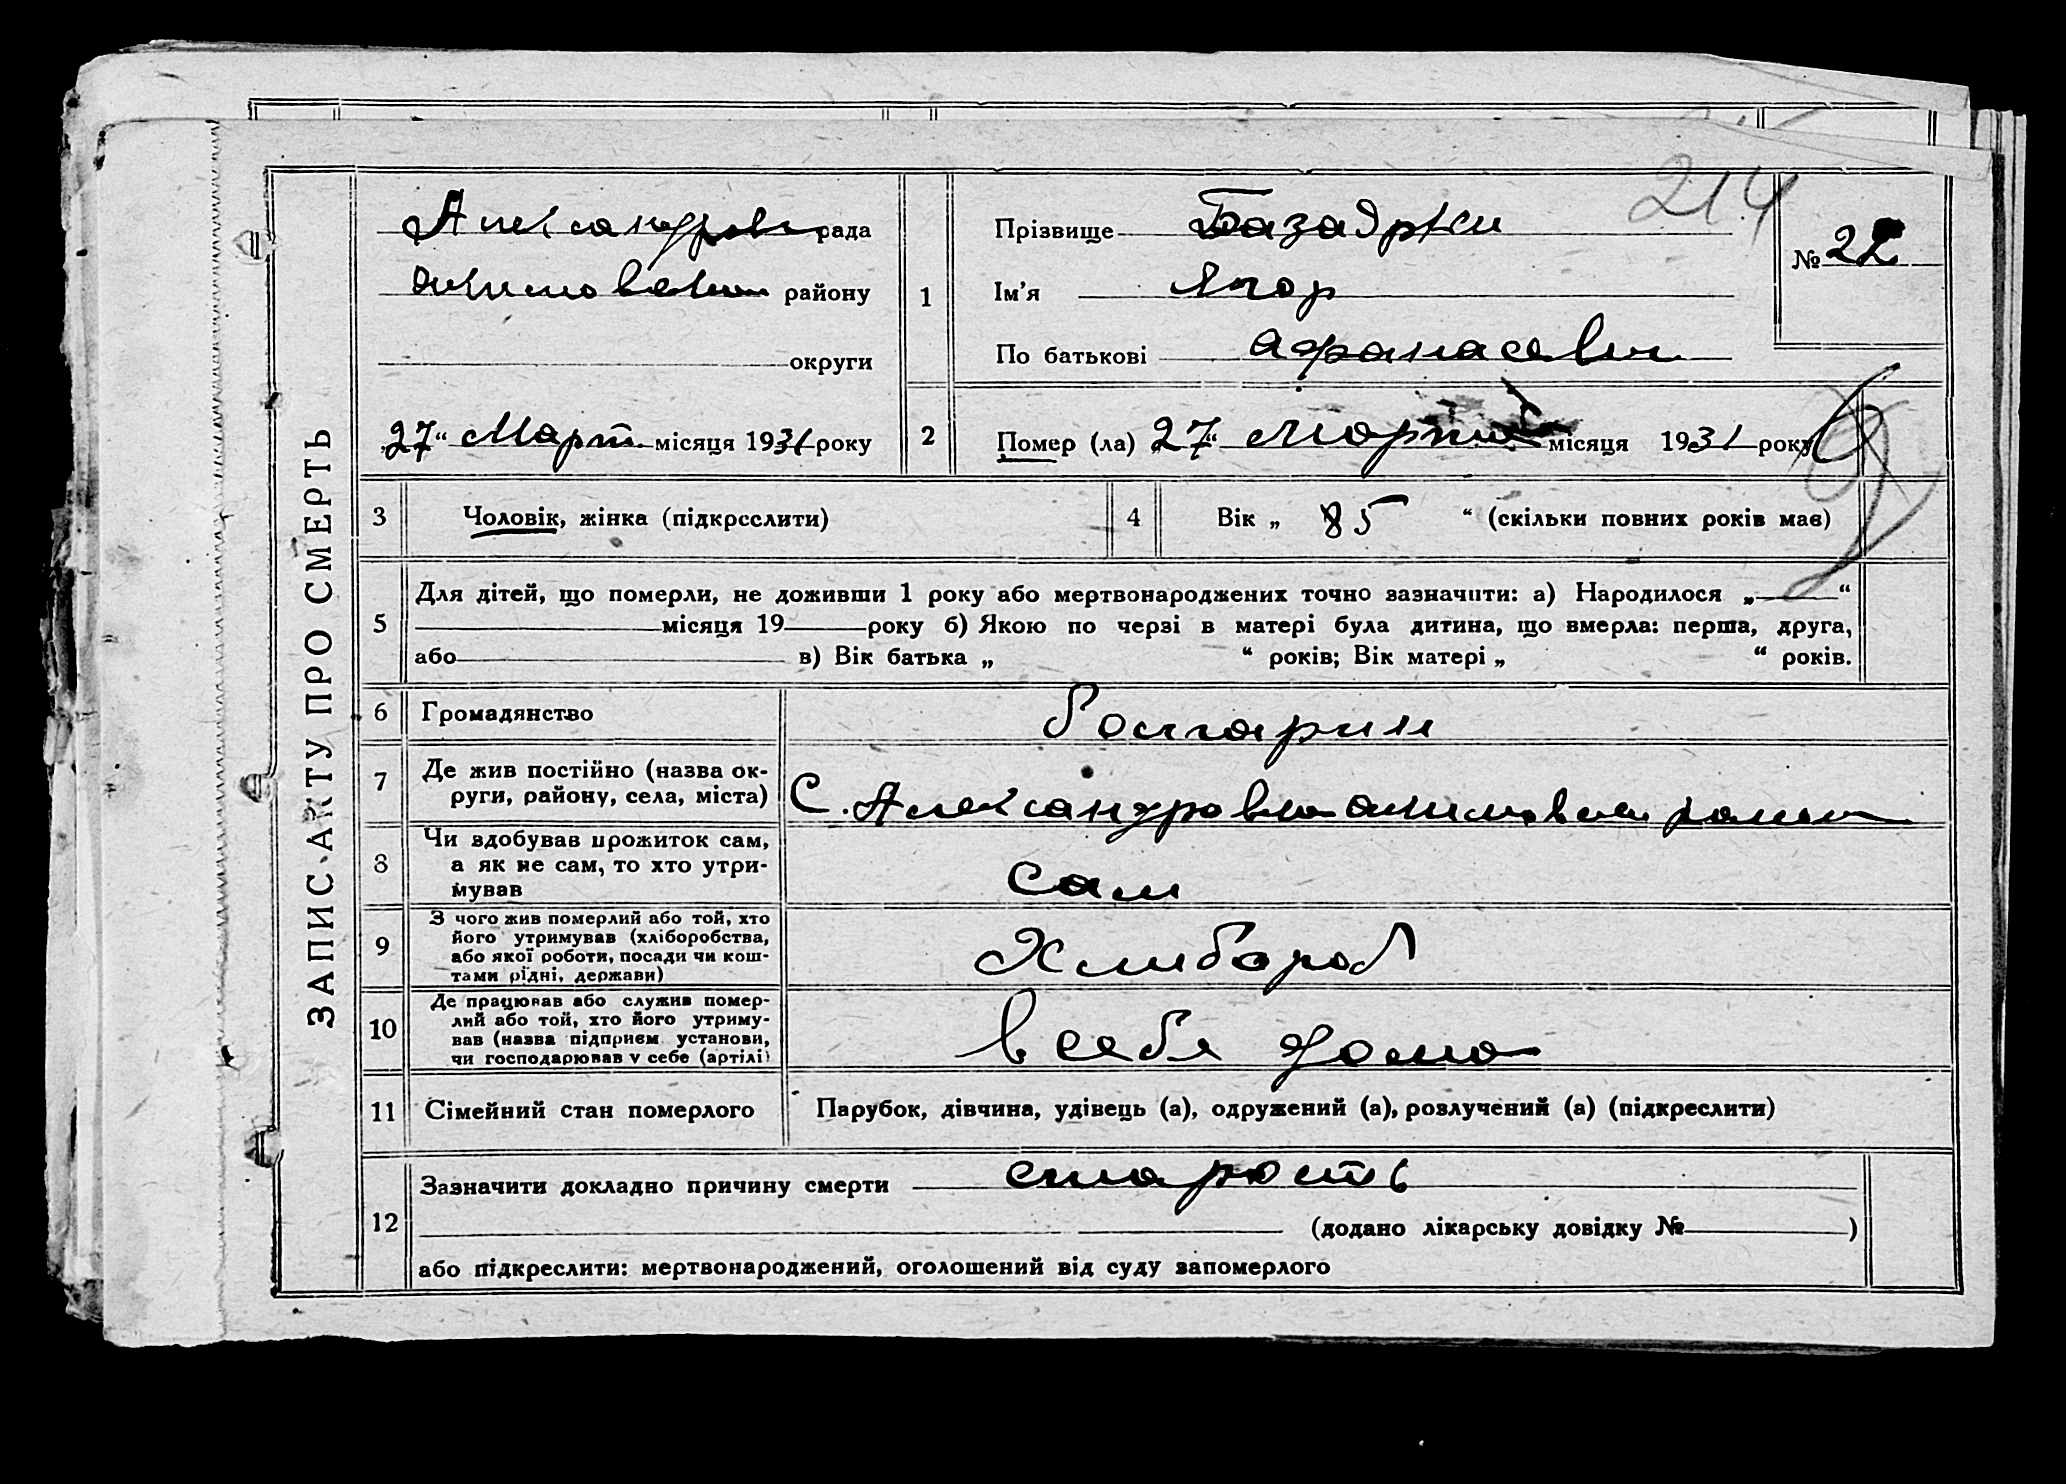 214
ЗАПИС АКТУ ПРО СМЕРТЬ
Александровк рада
району
округи
27 “ Март місяця 1931 року
1
Прізвище Базаджи
Ім’я Ягор
По батькові Афанасевич
№ 22
2
Помер (ла) 27 “ місяця 1931 року
3 Чоловік, жінка (підкреслити)
4 Вік „ 85 “ (скільки повних років мав)
5
Для дітей, що померли, не доживши 1 року або мертвонароджених точно зазначити: а) Народилося „ “
місяця 19 року б) Якою по черзі в матері була дитина, що вмерла: перша, друга,
або в) Вік батька „ “ років; Вік матері „ “ років.
6 Громадянство Болгарин
7 Де жив постійно (назва ок-
руги, району, села, міста) С. Александровка
8 Чи здобував прожиток сам,
а як не сам, то хто утри-
мував сам
9 З чого жив померлий або той, хто
його утримував (хліборобства,
або якої роботи, посади чи кош-
тами рідні, держави) Хлибороб
10 Де працював або служив помер-
лий або той, хто його утриму-
вав (назва підприєм. установи,
чи господарював у себе (артілі) в себя дома
11 Сімейний стан померлого Парубок, дівчина, удівець (а), одружений (а), розлучений (а) (підкреслити)
12
Зазначити докладно причину смерти старость
(додано лікарську довідку № )
або підкреслити: мертвонароджений, оголошений від суду запомерлого